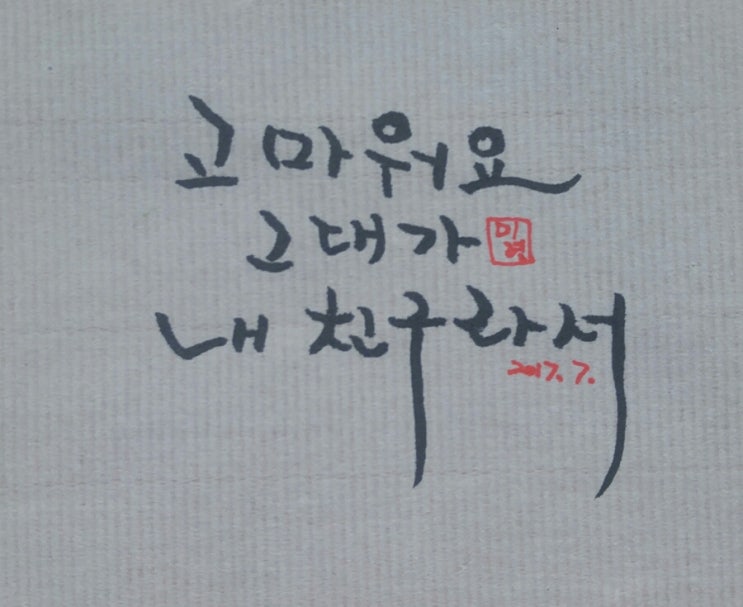 고마워요
그대가
미영
내 친구라서
2017. 7.